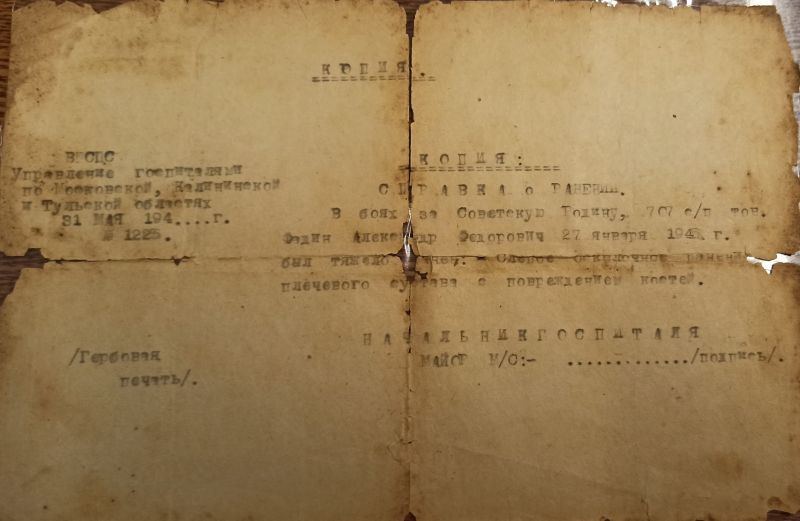 КОПИЯ.
ВЦСПС
Управление госпиталями
по Московской, Калининской
и Тульской областях
31 МАЯ 194....г.
№ 1225.
КОПИЯ:
СПРАВКА о РАНЕНИИ.
В боях за Советскую Родину, 707 с/п тов.
Федин Александр Федорович 27 января 194 г.
был тяжело ранен: - осколочное ранение
плечевого сустава с повреждением костей.
НАЧАЛЬНИК ГОСПИТАЛЯ
МАЙОР М/С:- ............./подпись/.
/Гербовая
печать/.